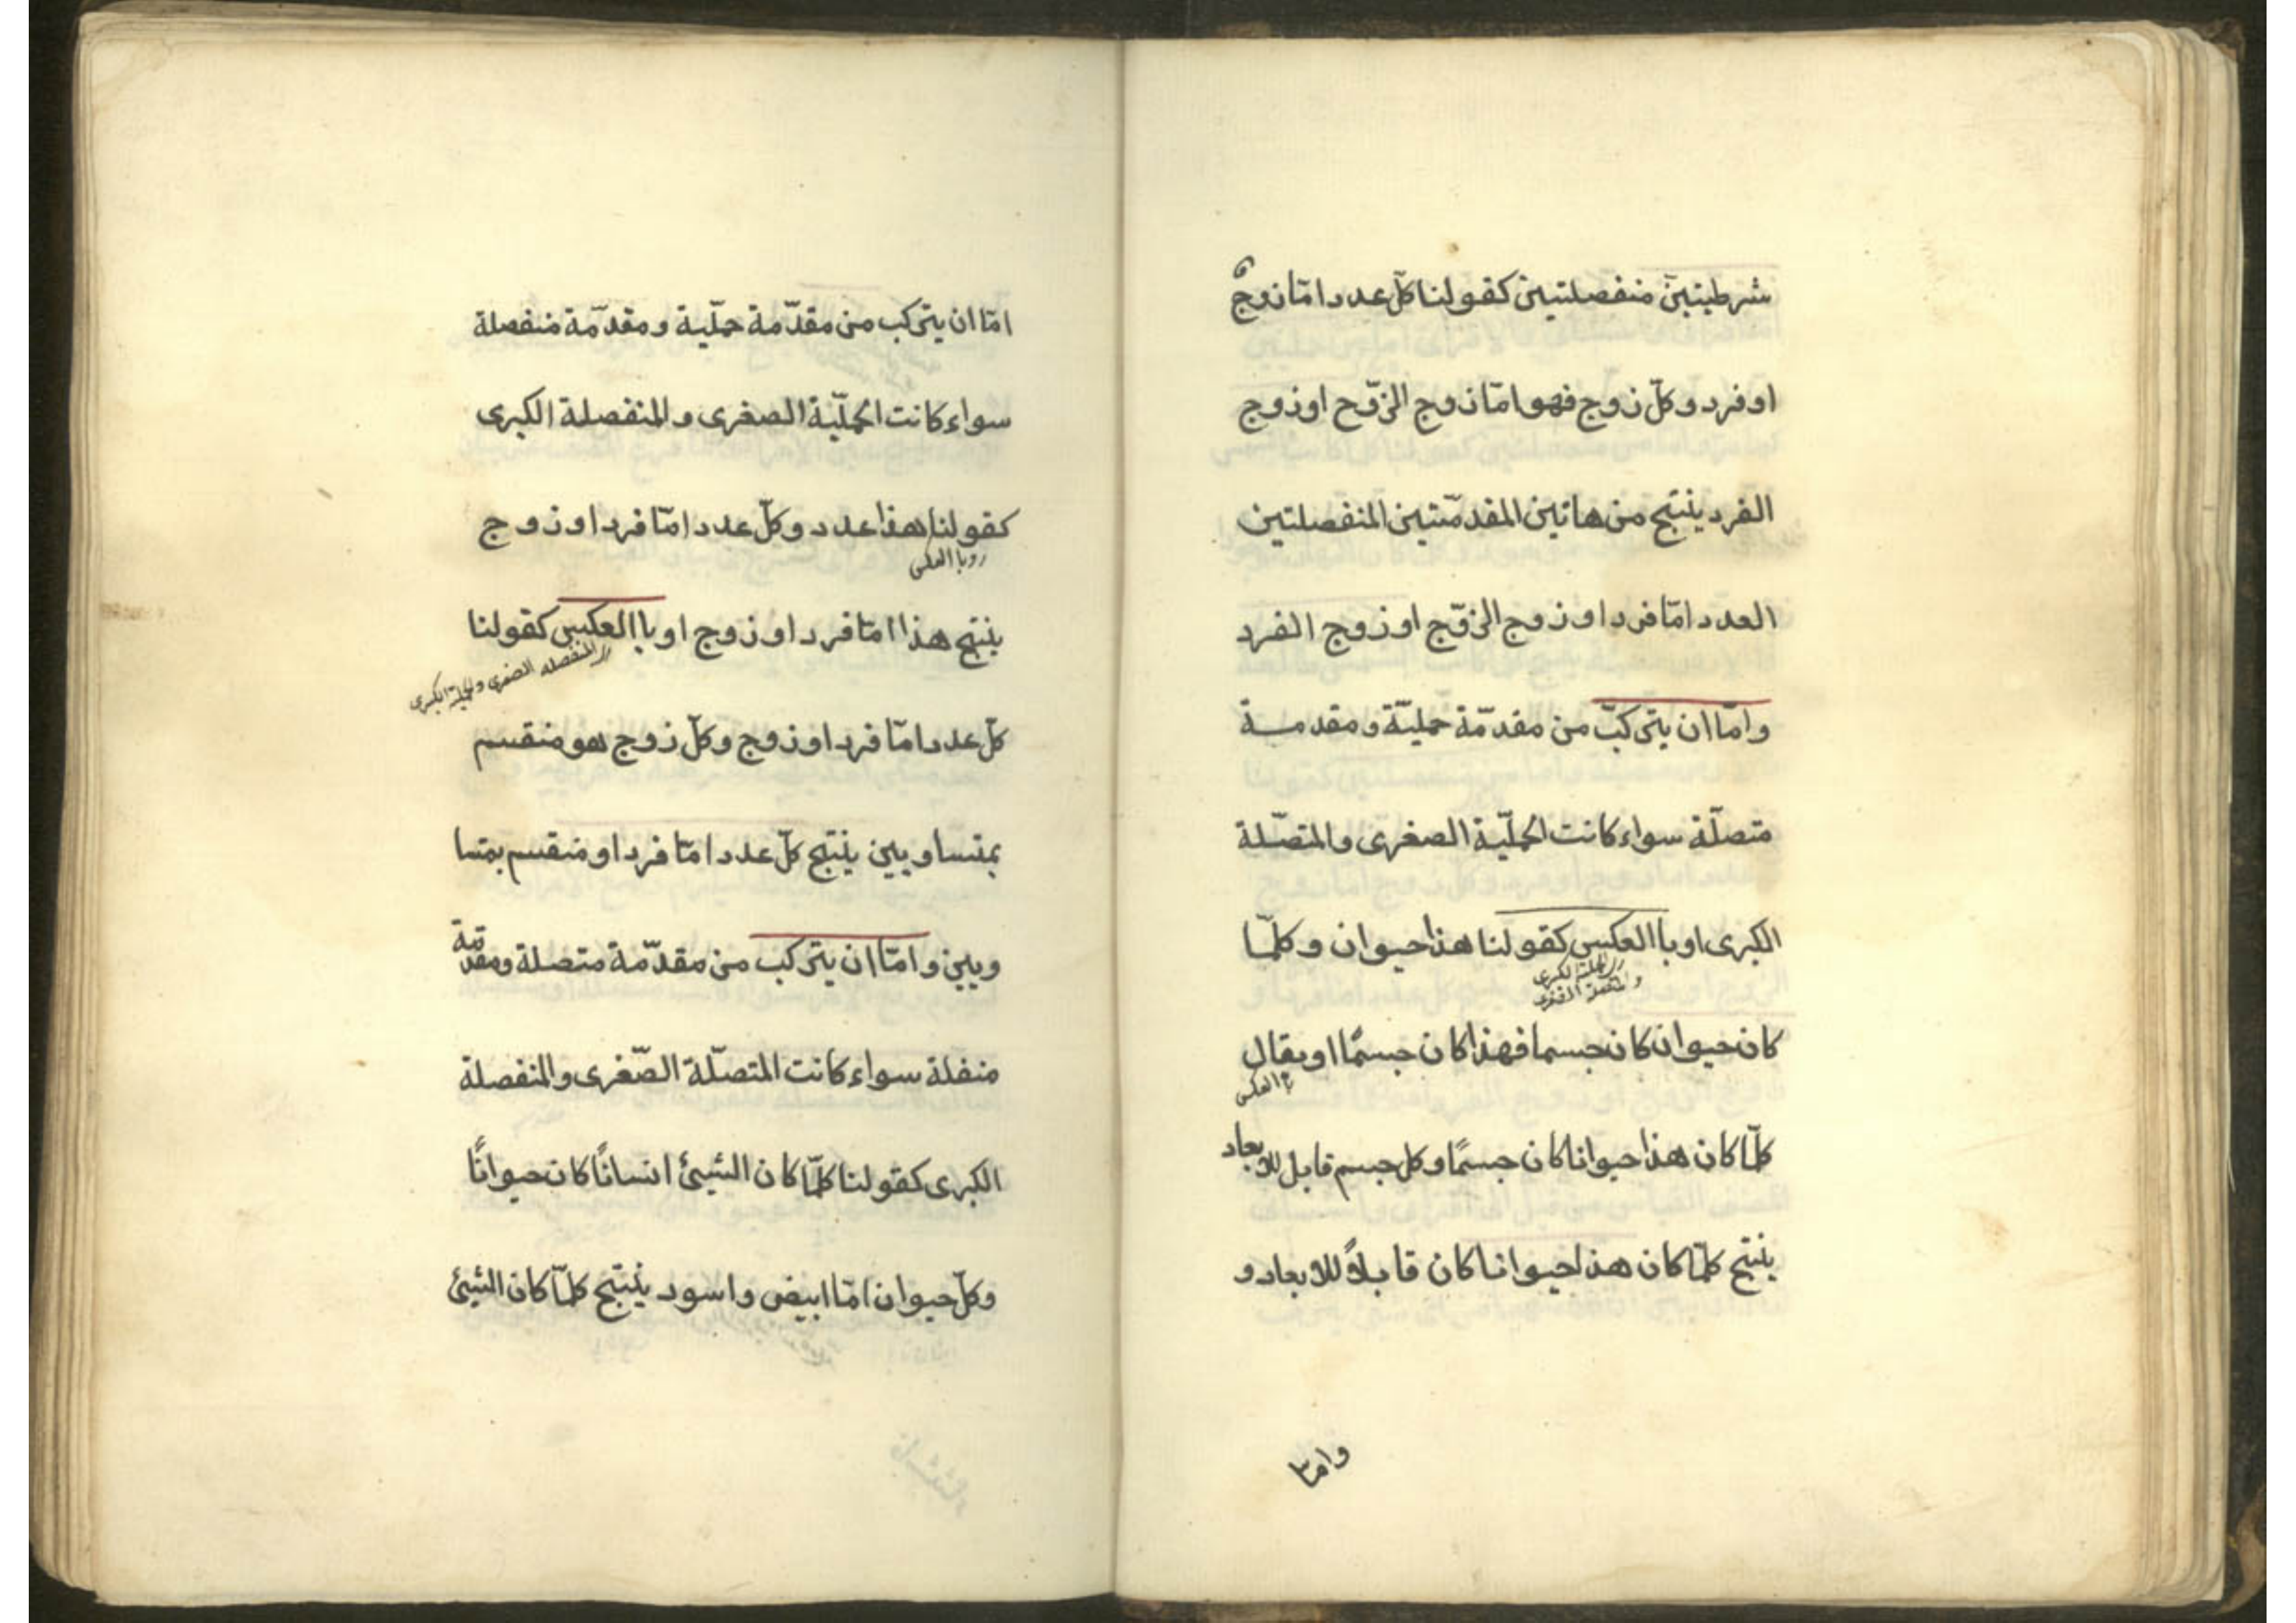 شرطيتين منفصلتين كقولنا كلّ عدد امّا زوج
او فرد وكلّ زوج فهو امّا زوج الزّوج او زوج
الفرد ينتج من هاتين المقدمّتين المنفصلتين
العدد امّا فرد او زوج الزّوّج او زوج الفرد
وامّا ان يتركبّ من مقدّمة حمليّة ومقدمة
متصلّة سواء كانت الحمليّة الصغرى والمتصّلة
الكبرى او باالعكس كقولنا هذا حيوان وكلمّا
كان حيوان كان جسما فهذا كان جسمًا او يقال
باالعكس
كلمّا كان هذا حيوانا كان جسمًا وكل جسم قابل للابعاد
ينتج كلمّا كان هذا حيوانا كان قابلاً للابعاد و
وامّا
امّا ان يتركب من مقدّمة حمليّة ومقدّمة منفصلة
سواء كانت الحمليّة الصغرى والمنفصلة الكبرى
كقولنا هذا عدد وكلّ عدد امّا فرد او زوج
وباالعكس
ينتج هذا امّا فرد او زوج او باالعكس كقولنا
المنفصله الصغرى والحملية الكبرى
كلّ عدد امّا فرد او زوج وكلّ زوج هو منقسم
بمتساويين ينتج كلّ عدد امّا فرد او منقسم بمتسا
ويين وامّا ان يتركب من مقدّمة متصلة ومقدّمة
منفلة سواء كانت المتصلّة الصّغرى والمنفصلة
الكبرى كقولنا كلمّا كان الشيئ انسانًا كان حيوانًا
وكلّ حيوان امّا ابيض واسود ينتج كلمّا كان الشيئ